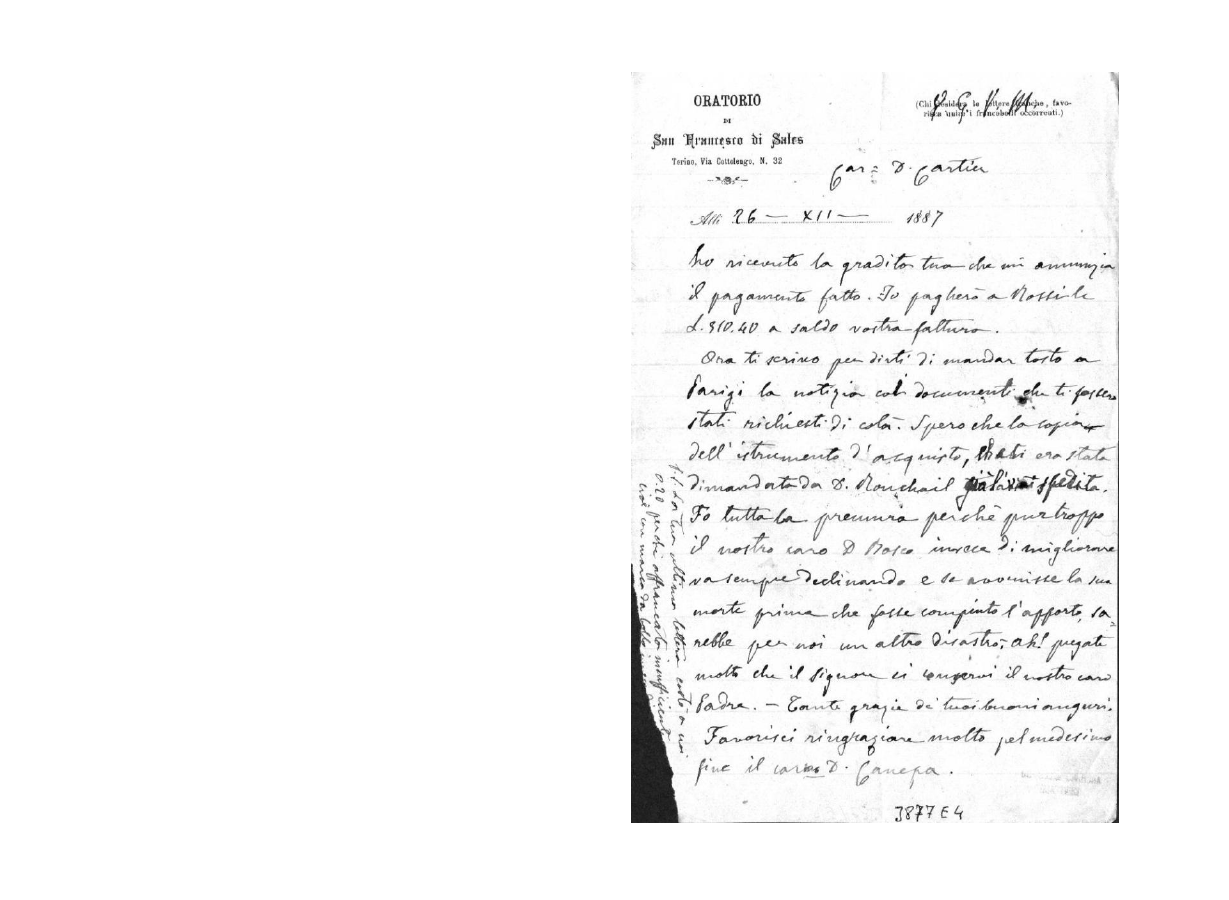 ORATORIO
DI
San Francesco di Sales
Torino, Via Cottolengo, N. 32
(Chi desidera le lettere franche, favo-
risca unire i francobolli occorrenti.)
V. G. V. M
Car.º D. Cartier
Alli 26 — XII — 1887
Ho ricevuto la gradita tua che mi annunzia
il pagamento fatto. Io pagherò a Rossi le
L. 310.40 a saldo vostra fattura.
Ora ti scrivo per dirti di mandar tosto a
Parigi la notizia coi documenti che ti fossero
stati richiesti di colà. Spero che la copia
dell'istrumento d'acquisto, era stata
dimandata da D. Ronchail già spedita.
Fo tutta la premura perchè pur troppo
il nostro caro D Bosco invece di migliorare
va sempre declinando e se avvenisse la sua
morte prima che fosse compiuto l'apporto, sa=
rebbe per noi un altro disastro; ah! pregate
molto che il Signore ci conservi il nostro caro
Padre. — Tante grazie de' tuoi buoni auguri.
Favorisci ringraziare molto pel medesimo
fine il caro D. Canepa.
P.S. La tua ultima lettera costò a noi
0.20 perchè affrancata insufficiente
cioè con marca da bollo
3877 E 4